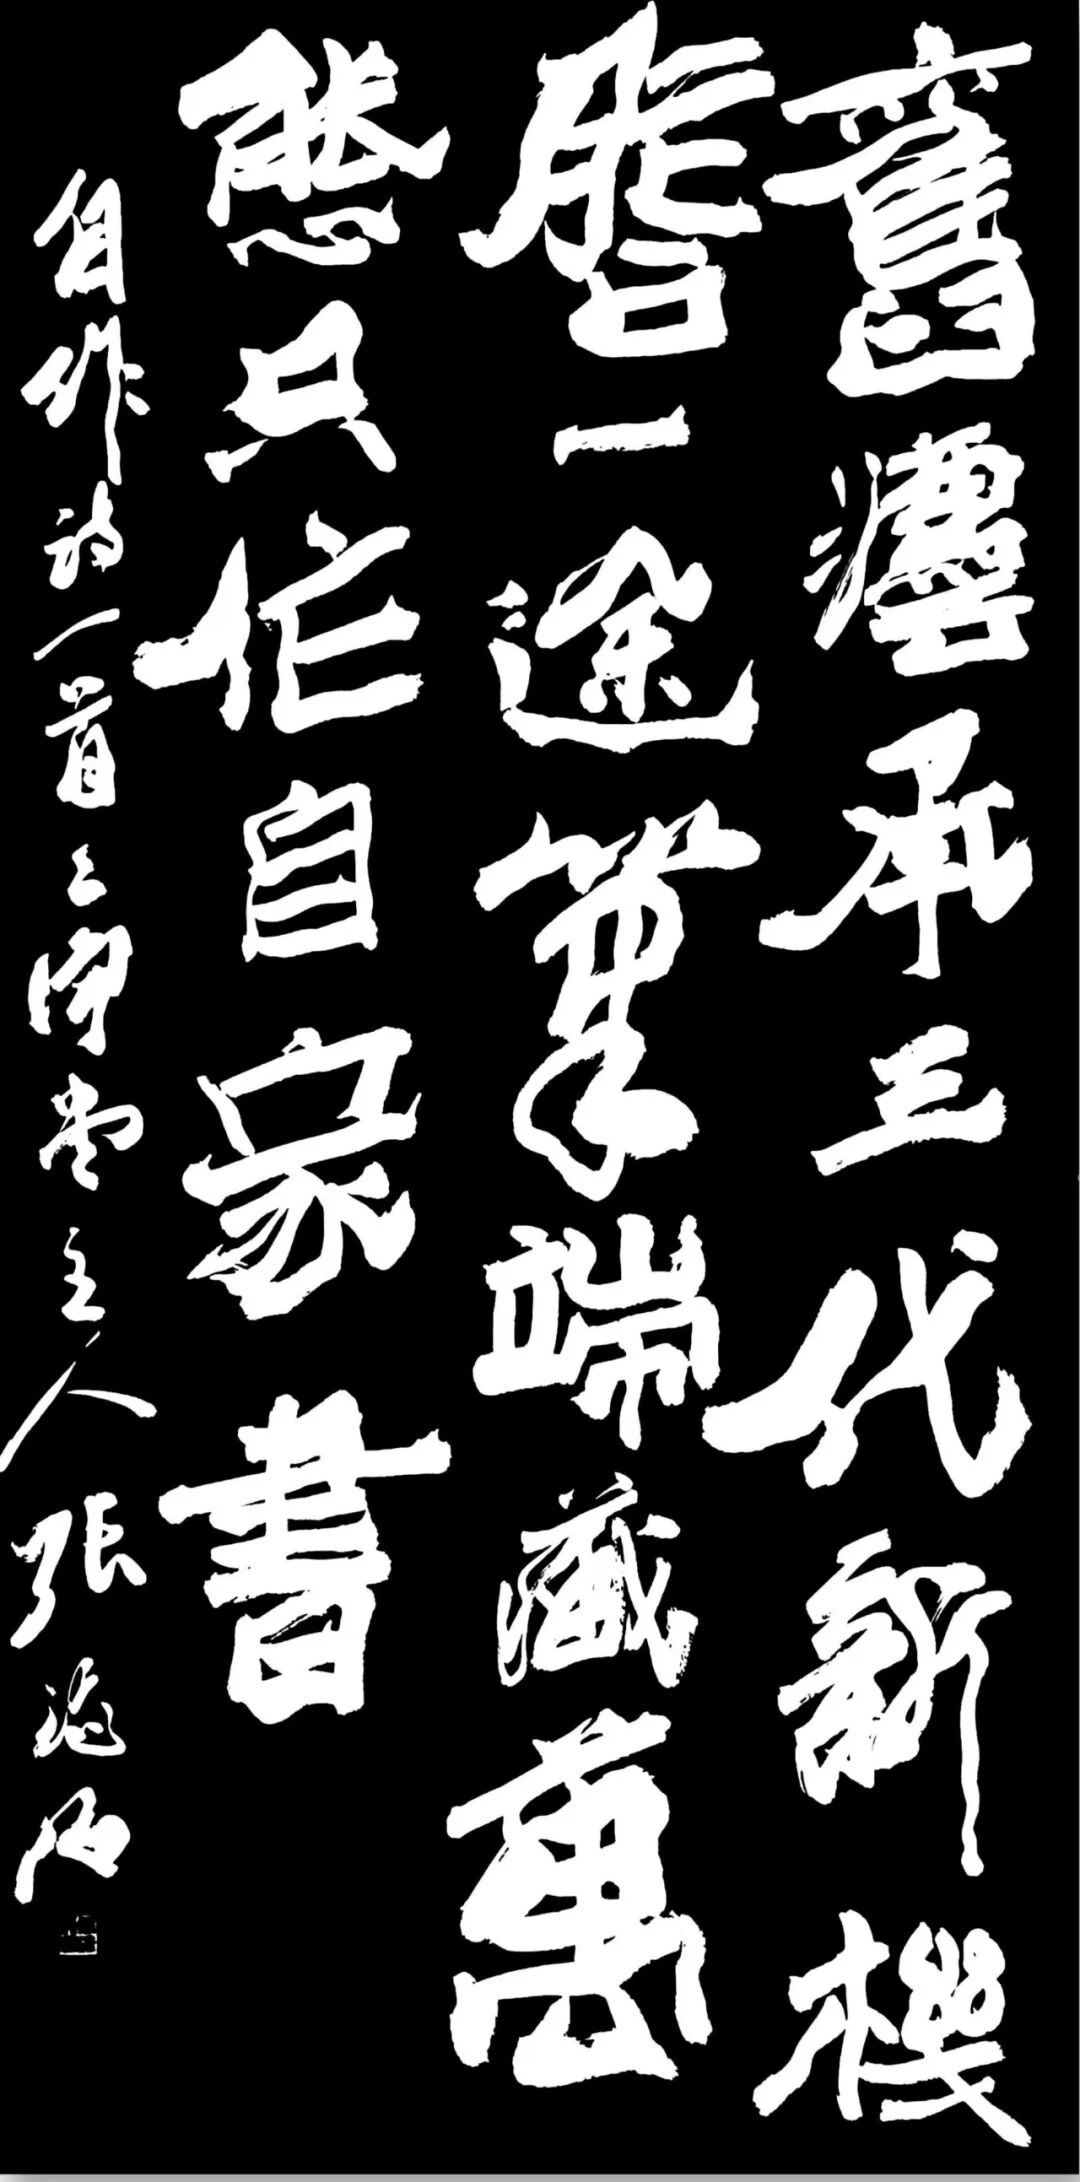 舊灋承三代新機
啓一途筆端藏萬
態只作自家書
自作詩一首堂主人張